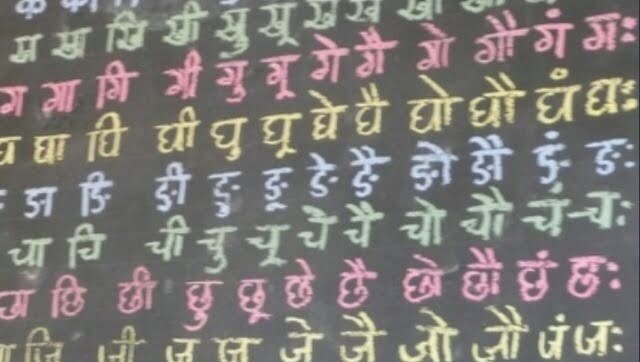 ख खा खि खी खु खू खे खै
ग गा गि गी गु गू गे गै गो गौ गं गः
घ घा घि घी घु घू घे घै घो घौ घं घः
ङा ङि ङी ङु ङू ङे ङै ङो ङौ ङं ङः
चा चि ची चु चू चे चै चो चौ चं चः
छा छि छी छु छू छे छै छो छौ छं छः
जि जी जु जू जे जै जो जौ जं जः